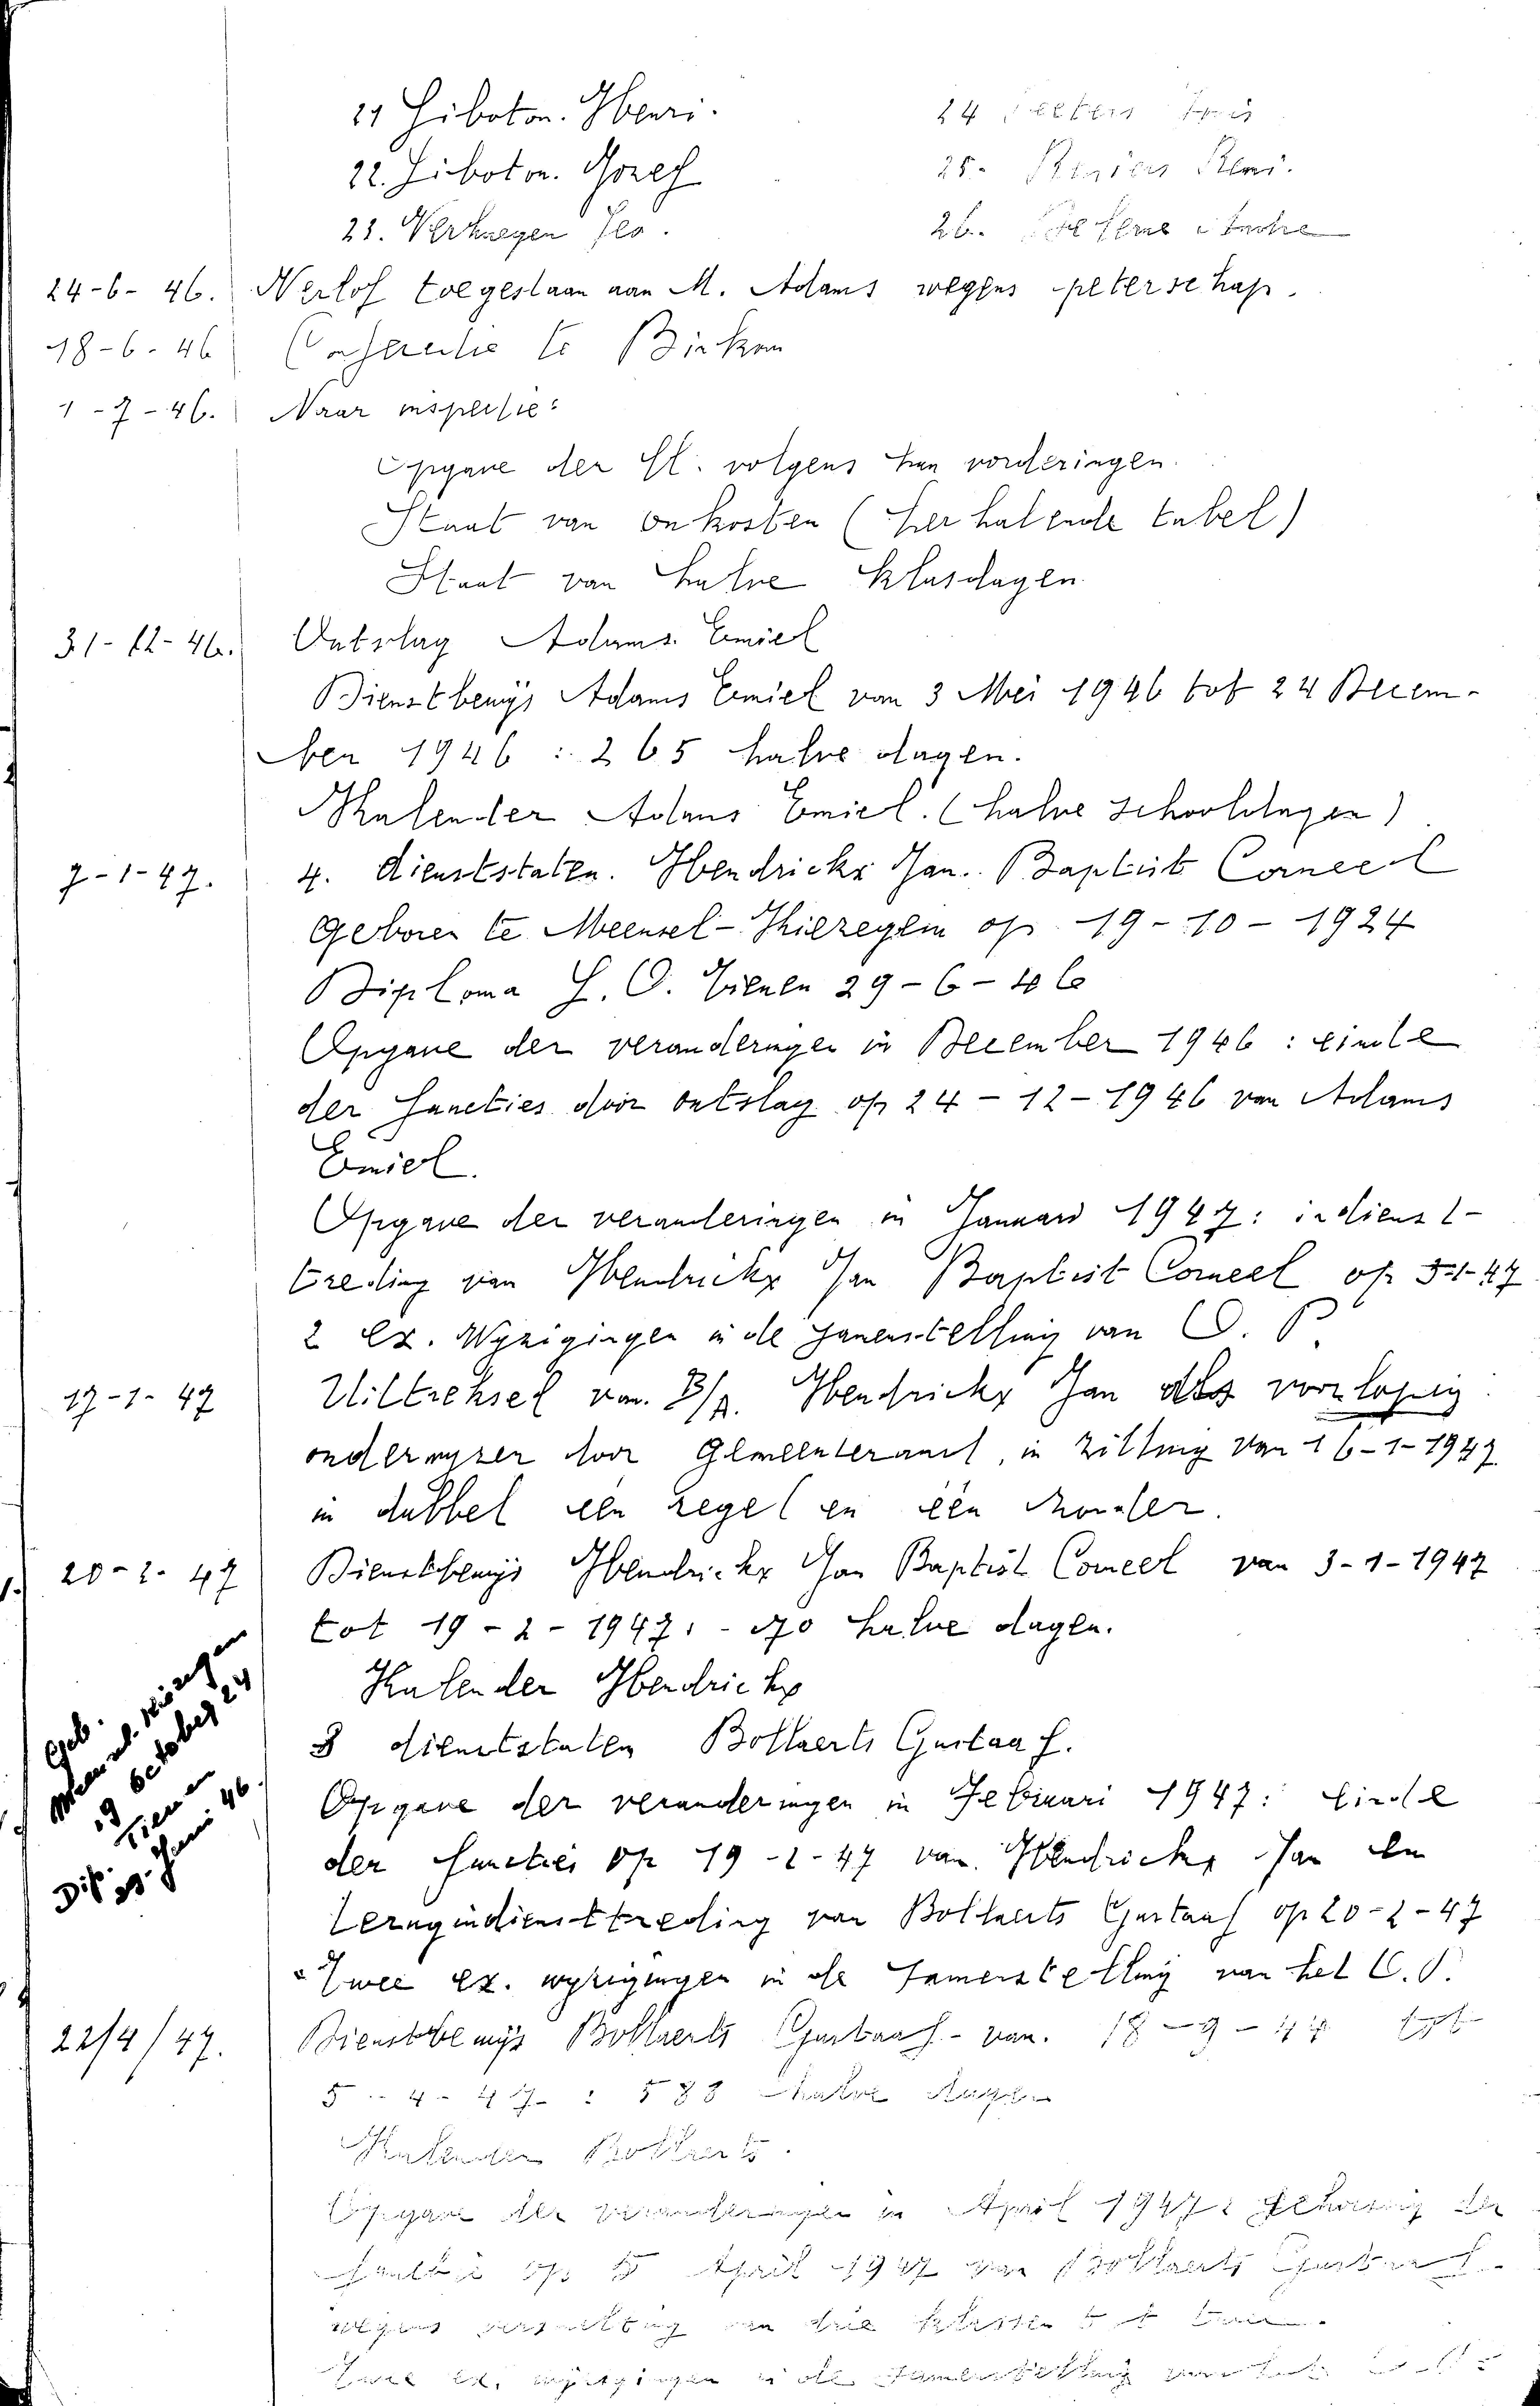 21 Liboton. Henri.
22. Liboton. Jozef
23. Verhaegen Leo.
24
25. Remi.
26.
24-6-46. Verlof toegestaan aan M. Adams wegens peterschap.
18-6-46 Conferentie te Binkom
1-7-46. Naar inspectie:
Opgave der ll. volgens hun vorderingen.
Staat van onkosten (herhalende tabel)
Staat van halve klasdagen
31-12-46. Ontslag Adams Emiel
Dienstbewijs Adams Emiel van 3 Mei 1946 tot 24 Decem-
ber 1946 : 265 halve dagen.
Kalender Adams Emiel. (halve schooldagen)
7-1-47. 4. dienststaten. Hendrickx Jan. Baptist Corneel
Geboren te Meensel-Kiezegem op 19-10-1924
Diploma L.O. Tienen 29-6-46
Opgave der veranderingen in December 1946 : einde
der functies door ontslag op 24-12-1946 van Adams
Emiel.
Opgave der veranderingen in Januari 1947: indienst-
treding van Hendrickx Jan Baptist Corneel op 3-1-47
2 ex. Wijzigingen in de samenstelling van O. P.
17-1-47 Uittreksel van. Hendrickx Jan als voorlopig
onderwijzer door Gemeenteraad, in zitting van 16-1-1947
in dubbel een zegel en één zonder.
20-2-47 Dienstbewijs Hendrickx Jan Baptist Corneel van 3-1-1947
tot 19-2-1947: 70 halve dagen.
Kalender Hendrickx
3 dienststaten Bollaerts Gustaaf.
Opgave der veranderingen in Februari 1947: Einde
der functies op 19-2-47 van. Hendrickx Jan en
terugindiensttreding van Bollaerts Gustaaf op 20-2-47
Twee ex. wijzigingen in de samenstelling van het O.P.
22/4/47. Dienstbewijs Bollaerts Gustaaf - van. 18-9-44 tot
5-4-47 : 583 halve dagen
Kalender Bollaerts.
Opgave der veranderingen in April 1947: der
op 5 April 1947 van Bollaerts Gustaaf
wegens
Twee ex. wijzigingen in de samenstelling van het
Geb.
Meensel. Kiezegem
19 october 24
Tienen
Dip. 29. Juni 46.